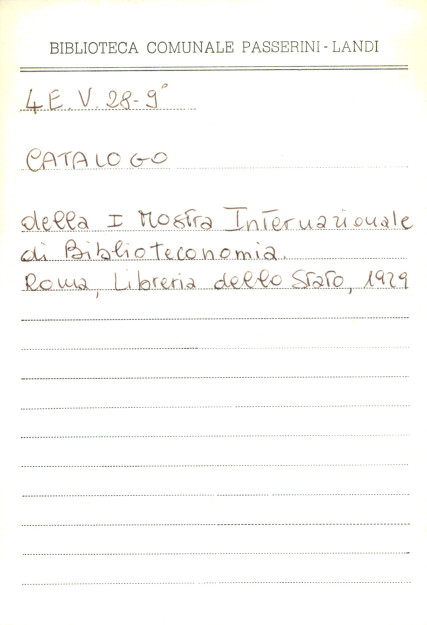 BIBLIOTECA COMUNALE PASSERINI-LANDI
4 E. V. 28-9°
CATALOGO
della I Mostra Internazionale
di Biblioteconomia.
Roma, Libreria dello Stato, 1929